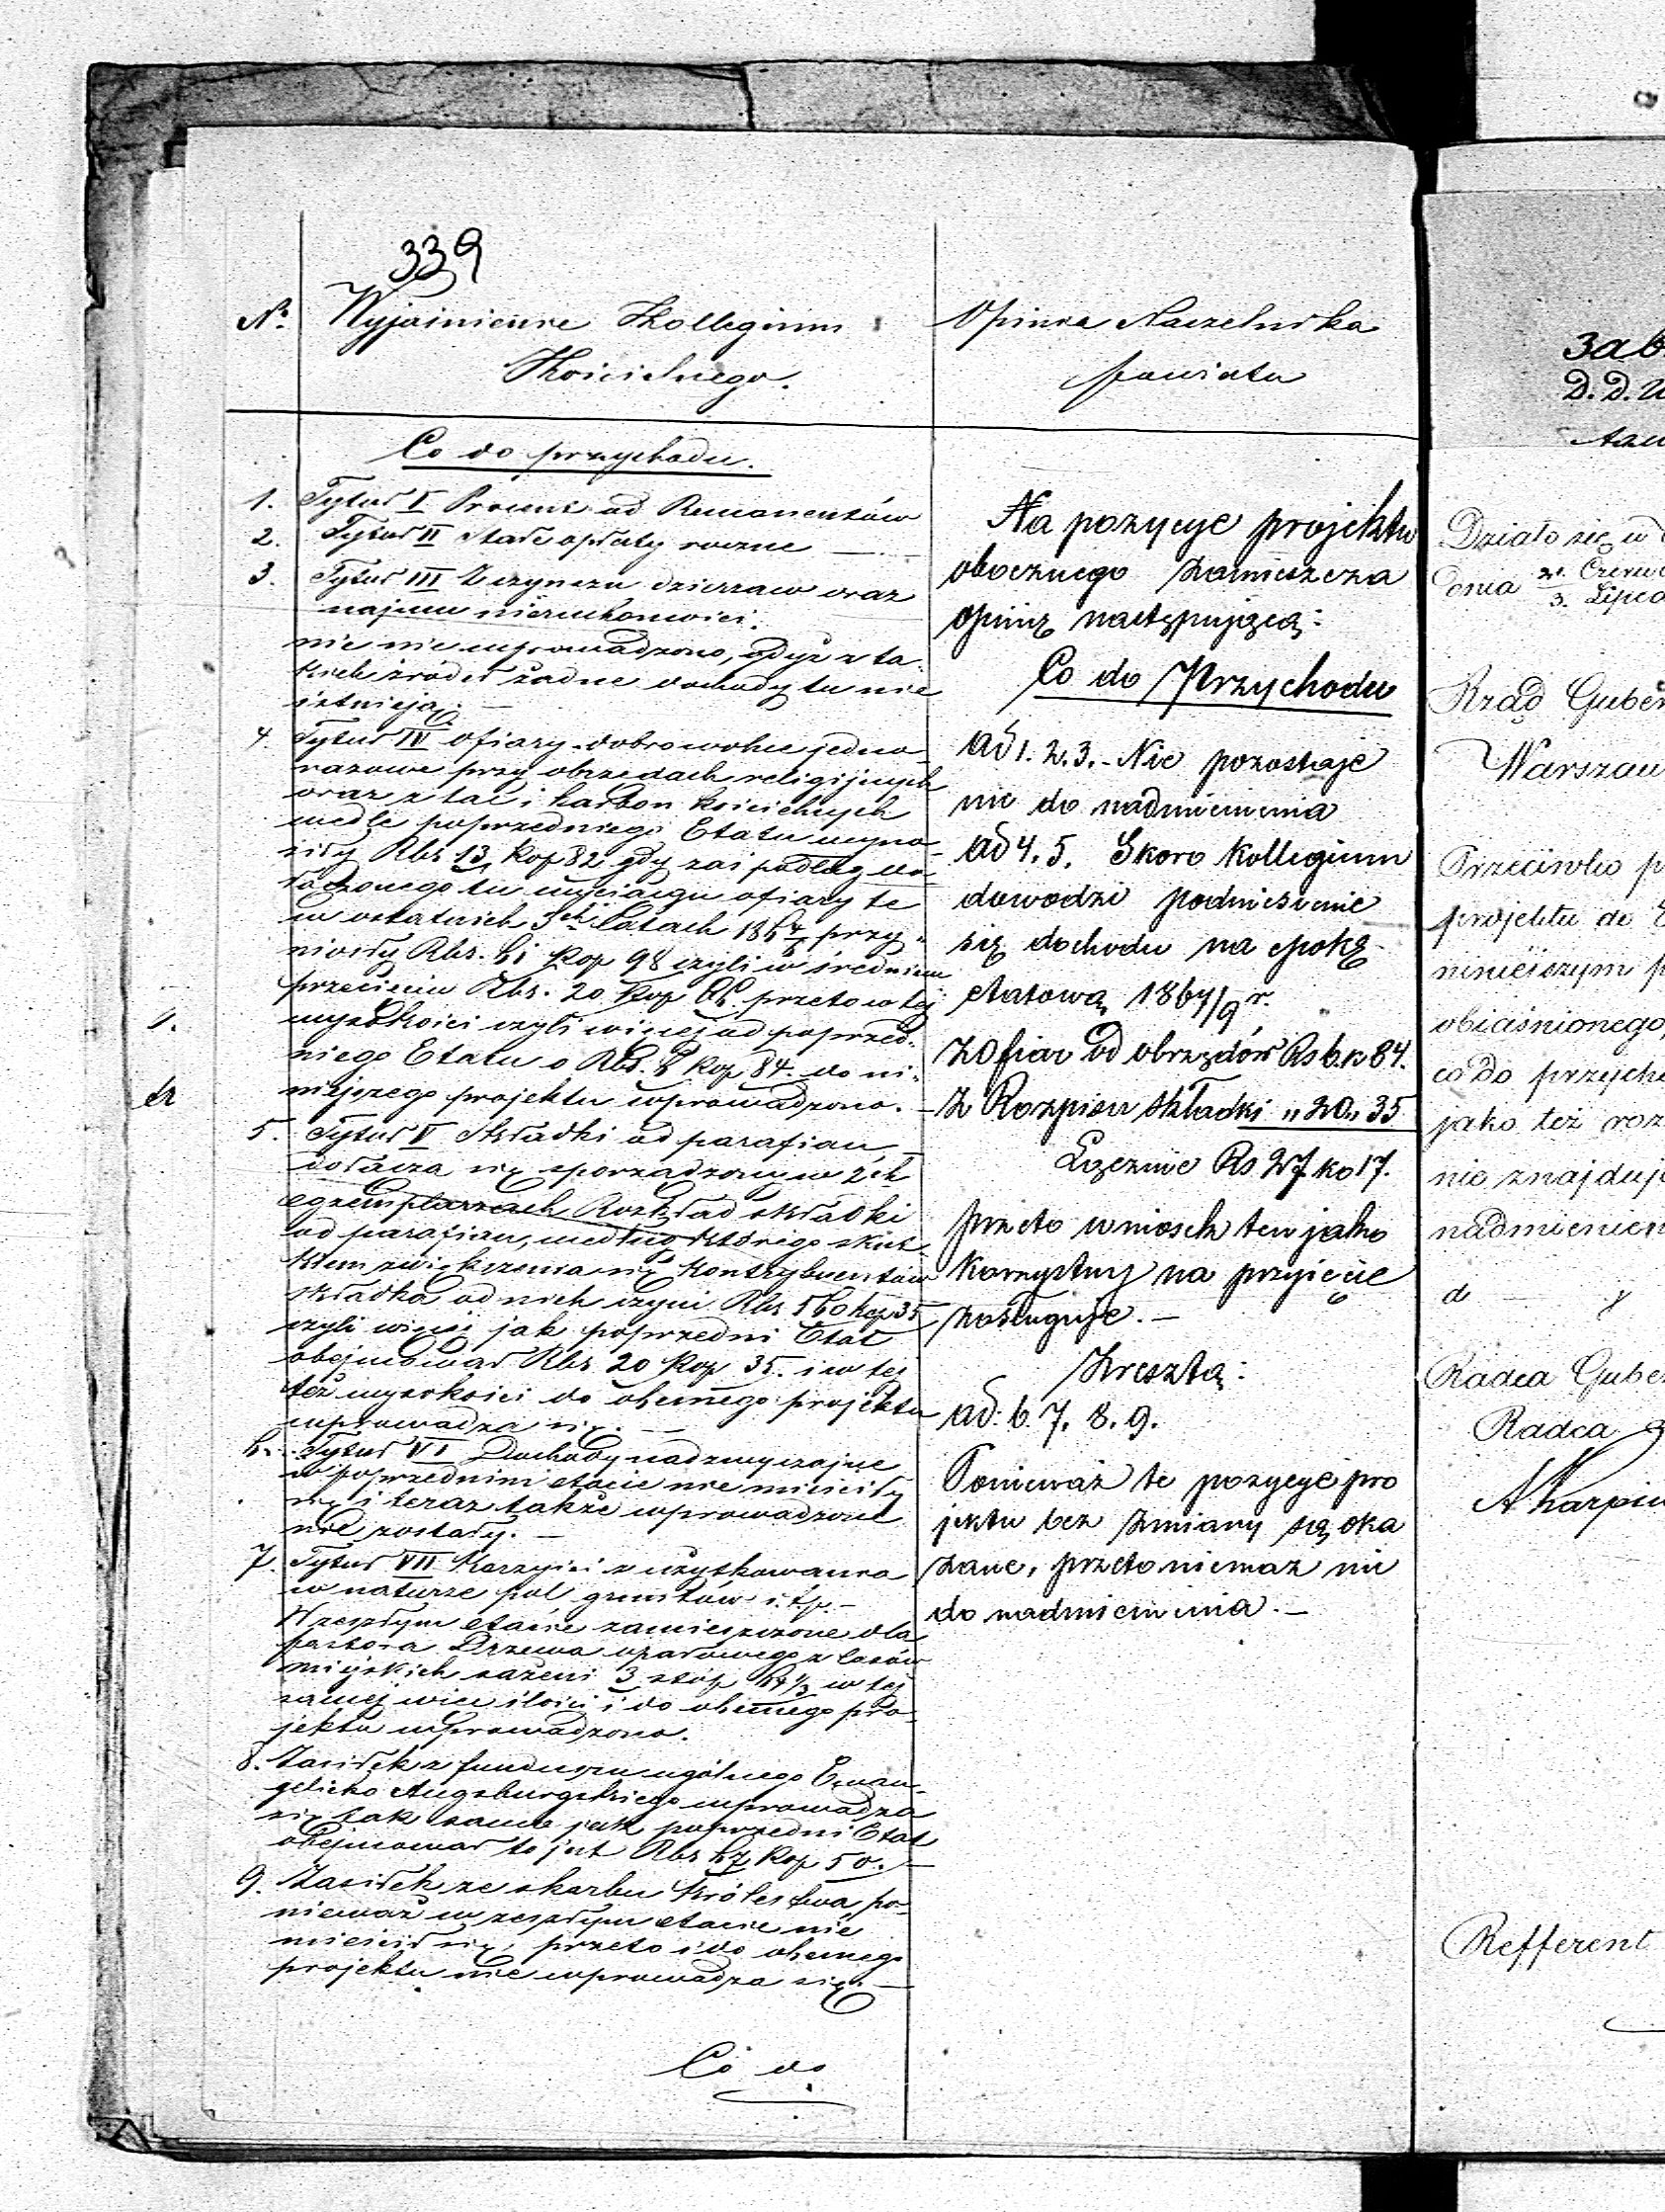 339
Nr. Wyjaśnienie Kollegium
Kościelnego.
Co do przychodu.
1. Tytuł I Procent od Remanentów
2. Tytuł II Stałe opłaty roczne —
3. Tytuł III Z czynszu dzierzaw oraz
najmu nieruchomości.
nic nie wprowadzono, gdyż z ta-
kich źródeł żadne dochody tu nie
istnieją. —
4. Tytuł IV ofiary dobrowolne jedno-
razowe przy obrzedach religijnych
oraz z tac i karbon kościelnych
wedle poprzedniego Etatu wyno-
siły Rbs 13 Kop 82 gdy zaś podług do-
łączonego tu wyciągu ofiary te
w ostatnich 3ch latach przy-
niosły Rbs. 61 Kop 98 czyli w średniem
przecięciu Rbs. 20 Kop 66. przeto w tej
wysokości czyli więcej od poprzed-
niego Etatu o Rbs. 6 Kop 84. do ni-
niejszego projektu wprowadzono. —
5. Tytuł V Składki od parafian,
dołącza się sporządzony w 2ch
egzemplarzach Rozkład składki
od parafian, według którego skut-
kiem zwiększenia się kontrybuentów
składka od nich czyni Rbs 560 kop 35
czyli więcej jak poprzedni Etat
obejmował Rbs 20 Kop 35. i w tej
też wysokości do obecnego projektu
wprowadza się. —
6. Tytuł VI Dochody nadzwyczajne
w poprzednim etacie nie mieściły
się i teraz także wprowadzone
nie zostały. —
7. Tytuł VII Korzyści z użytkowania
w naturze pol gruntów i t. p. —
W zeszłym etacie zamieszczone dla
pastora Drzewa opałowego z lasów
miejskich sażeni 3 stóp w tej
samej więc ilości i do obecnego pro-
jektu wprowadzono.
8. Zasiłek z funduszu ogólnego Ewan-
gelicko Augsburgskiego wprowadza
się tak samo jak poprzedni Etat
obejmował to jest Rbs 67 Kop 50. —
9. Zasiłek ze skarbu Królestwa po-
nieważ w zeszłym etacie nie
mieścił się, przeto i do obecnego
projektu nie wprowadza się. —
Co do
Opinia Naczelnika
powiatu
Na pozycye projektu
obocznego zamieszcza
opinię następującą:
Co do Przychodu
ad 1. 2. 3. - Nie pozostaje
nic do nadmienienia
ad 4. 5. Skoro Kollegium
dowodzi podniesienie
się dochodu na epokę
etatową 1867/9 r.
z Ofiar od obrzędów Rs 6. k 84.
z Rozpisu składki „ 20 „ 35
Łącznie Rs 27 ko 17.
przeto wniosek ten jako
korzystny na przyięcie
zasługuje. —
Zresztą:
ad. 6. 7. 8. 9.
Ponieważ te pozycye pro
jektu bez zmiany są oka
zane, przeto niemaz nic
do nadmienienia. —
Заб
D. D. U
Działo się w
dnia 21. Czerw
3. Lipca
Rząd Guber
Warszaw
Przeciwko p
projektu do E
niniejszym p
obiaśnionego,
co do przycho
jako też roz
nie znajduje
nadmienien
Radca Guber
Radca
Refferent